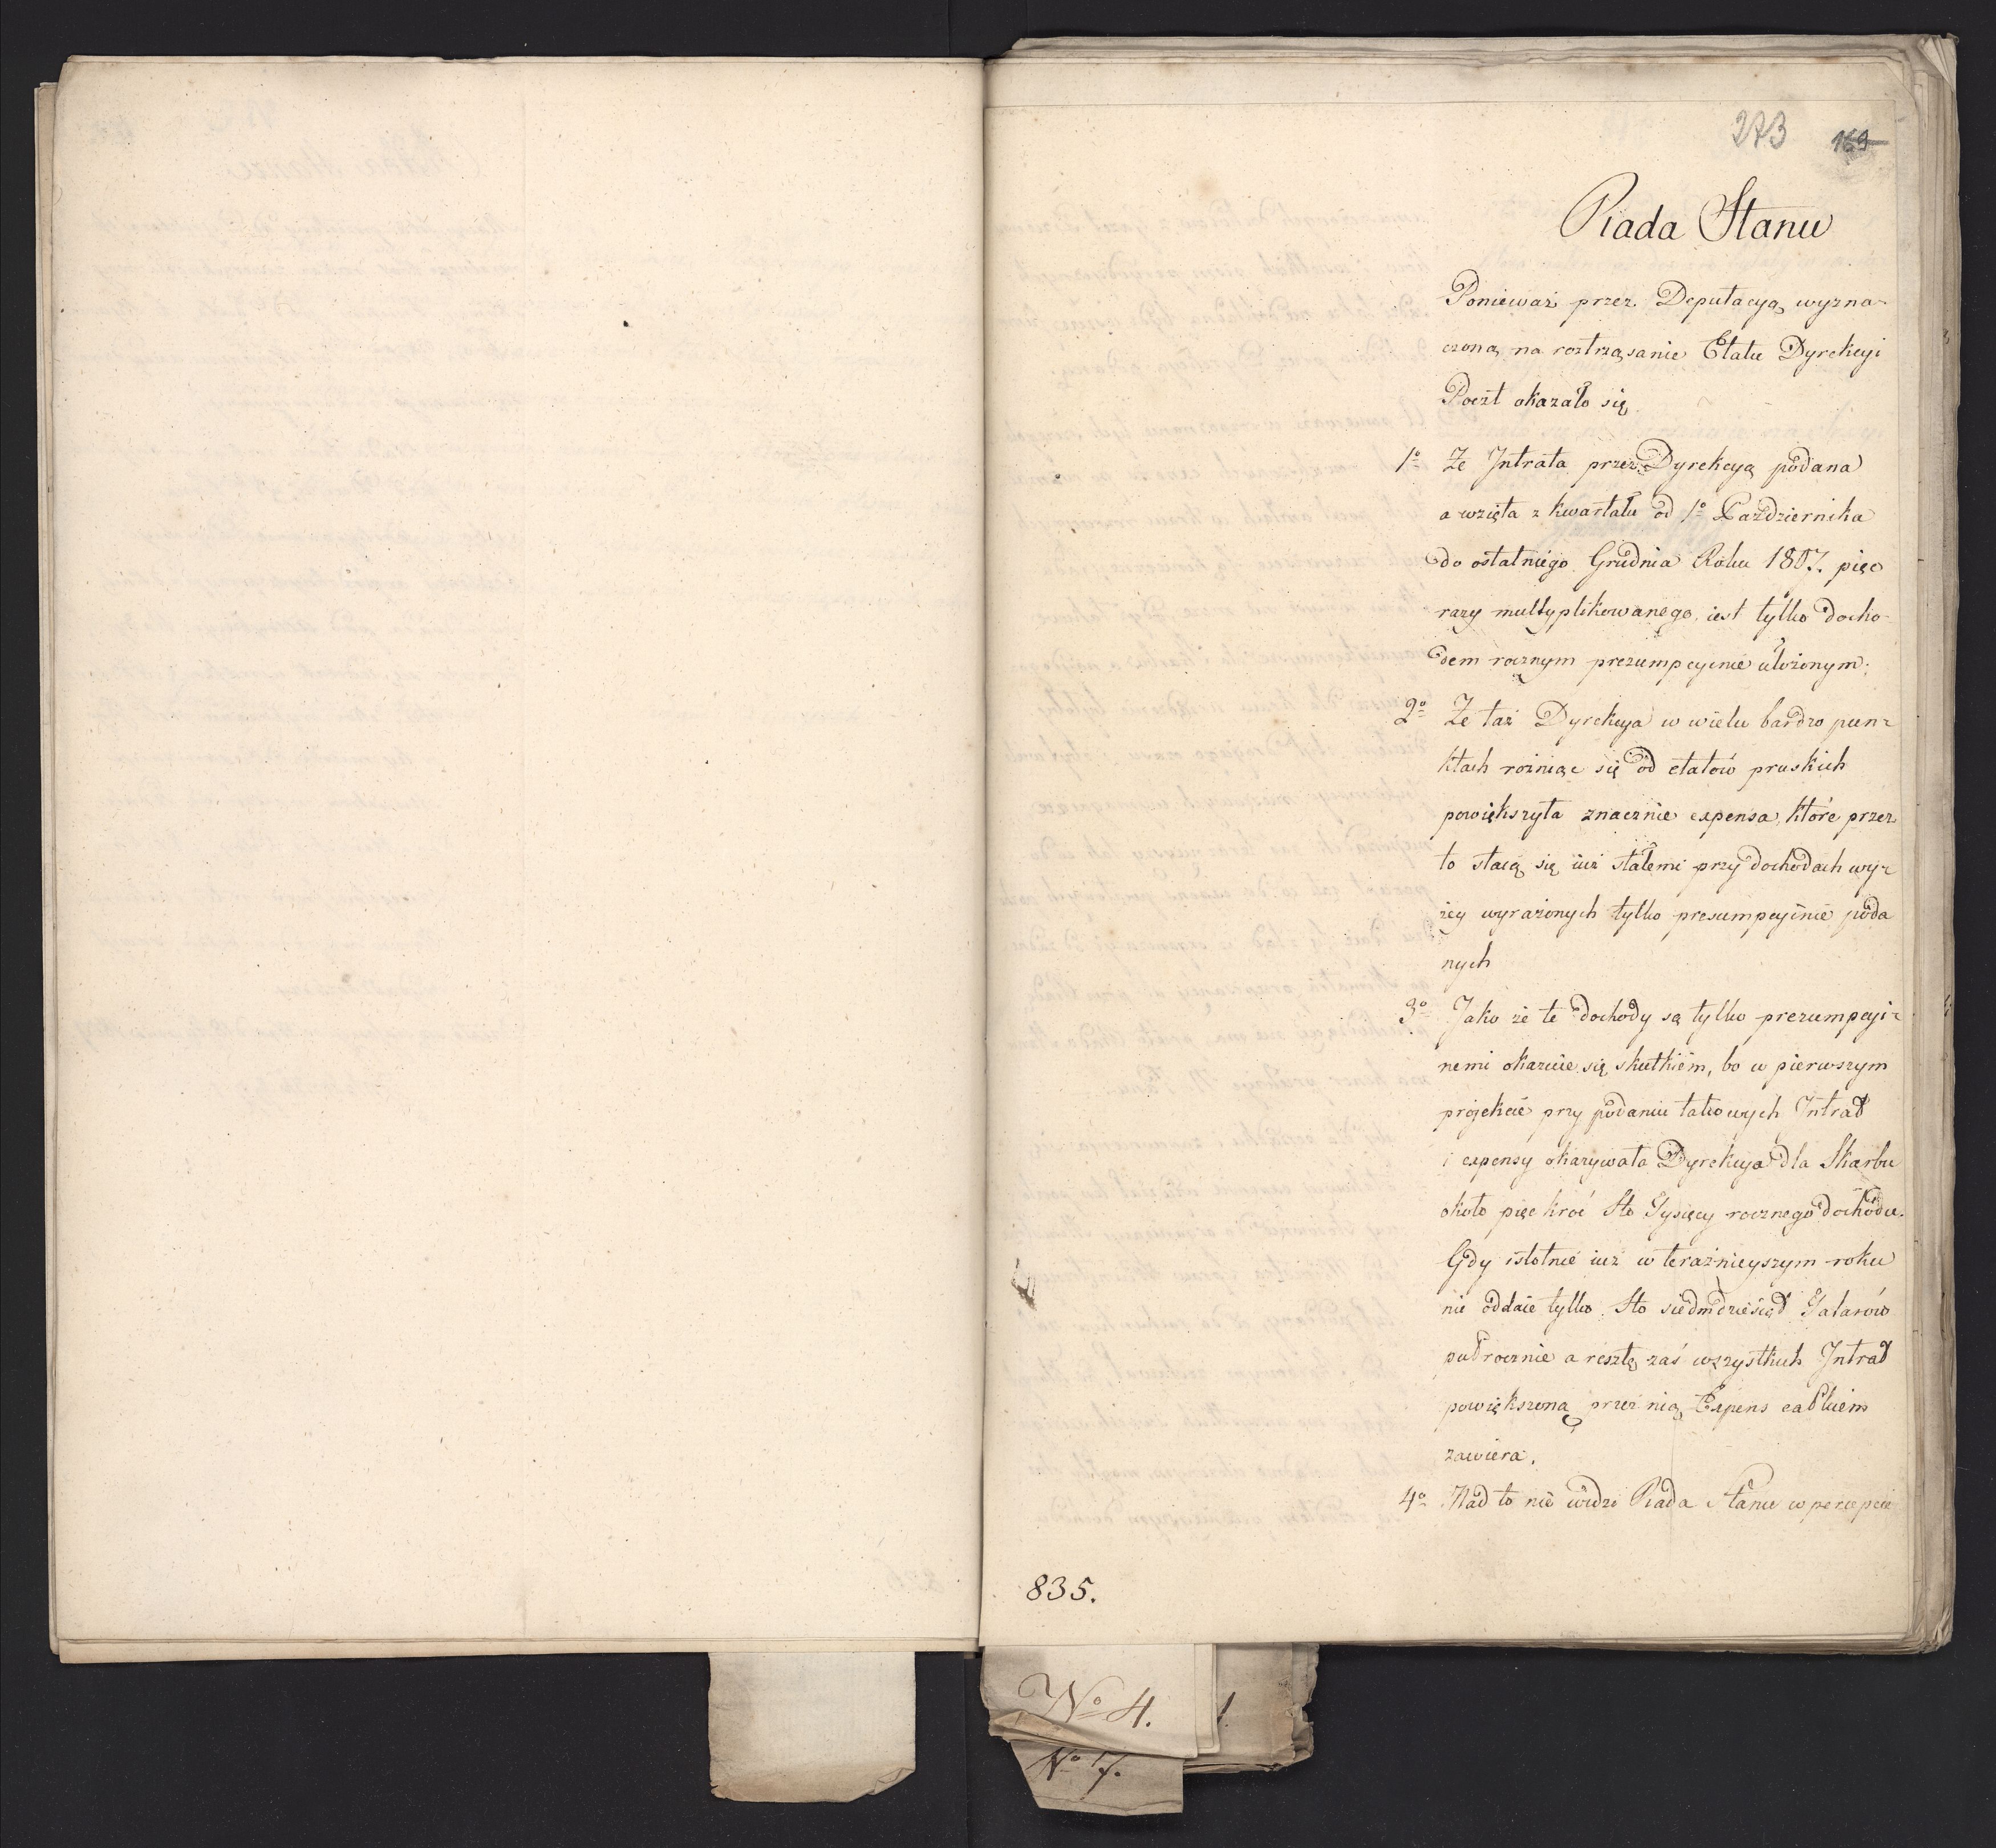 273 169
Rada Stanu
Ponieważ przez Deputacyą wyzna-
czoną na roztrząsanie Etatu Dyrekcyi
Poczt okazało się
1o Że Intrata przez Dyrekcyą podana
a wzięta z kwartału od 1o Października
do ostatniego Grudnia Roku 1807. pięć
razy multyplikowanego, iest tylko docho-
dem rocznym prezumpcyinie ułożonym;
2o Że taż Dyrekcya w wielu bardzo pun-
ktach rożniąc się od etatów pruskich
powiększyła znacznie expensa, które przez
to staią się iuż stałemi przy dochodach wy-
żey wyrażonych tylko presumpcyinie poda
nych
3o Jako że te dochody są tylko prezumpcyi-
nemi okazuie się skutkiem, bo w pierwszym
projekcie przy podaniu takowych Intrad
i expensy okazywała Dyrekcya dla Skarbu
około pięc kroć Sto Tysięcy rocznego dochodu.
Gdy istotnie iuż w teraźnieyszym roku
nie oddaie tylko Sto siedmdziesiąt Talarów
pułrocznie a resztę zaś wszystkich Intrad
powiększoną przez nią Expens całkiem
zawiera.
4o Nad to nie widzi Rada Stanu w percepcie
835.
No 4.
1.
No 7.